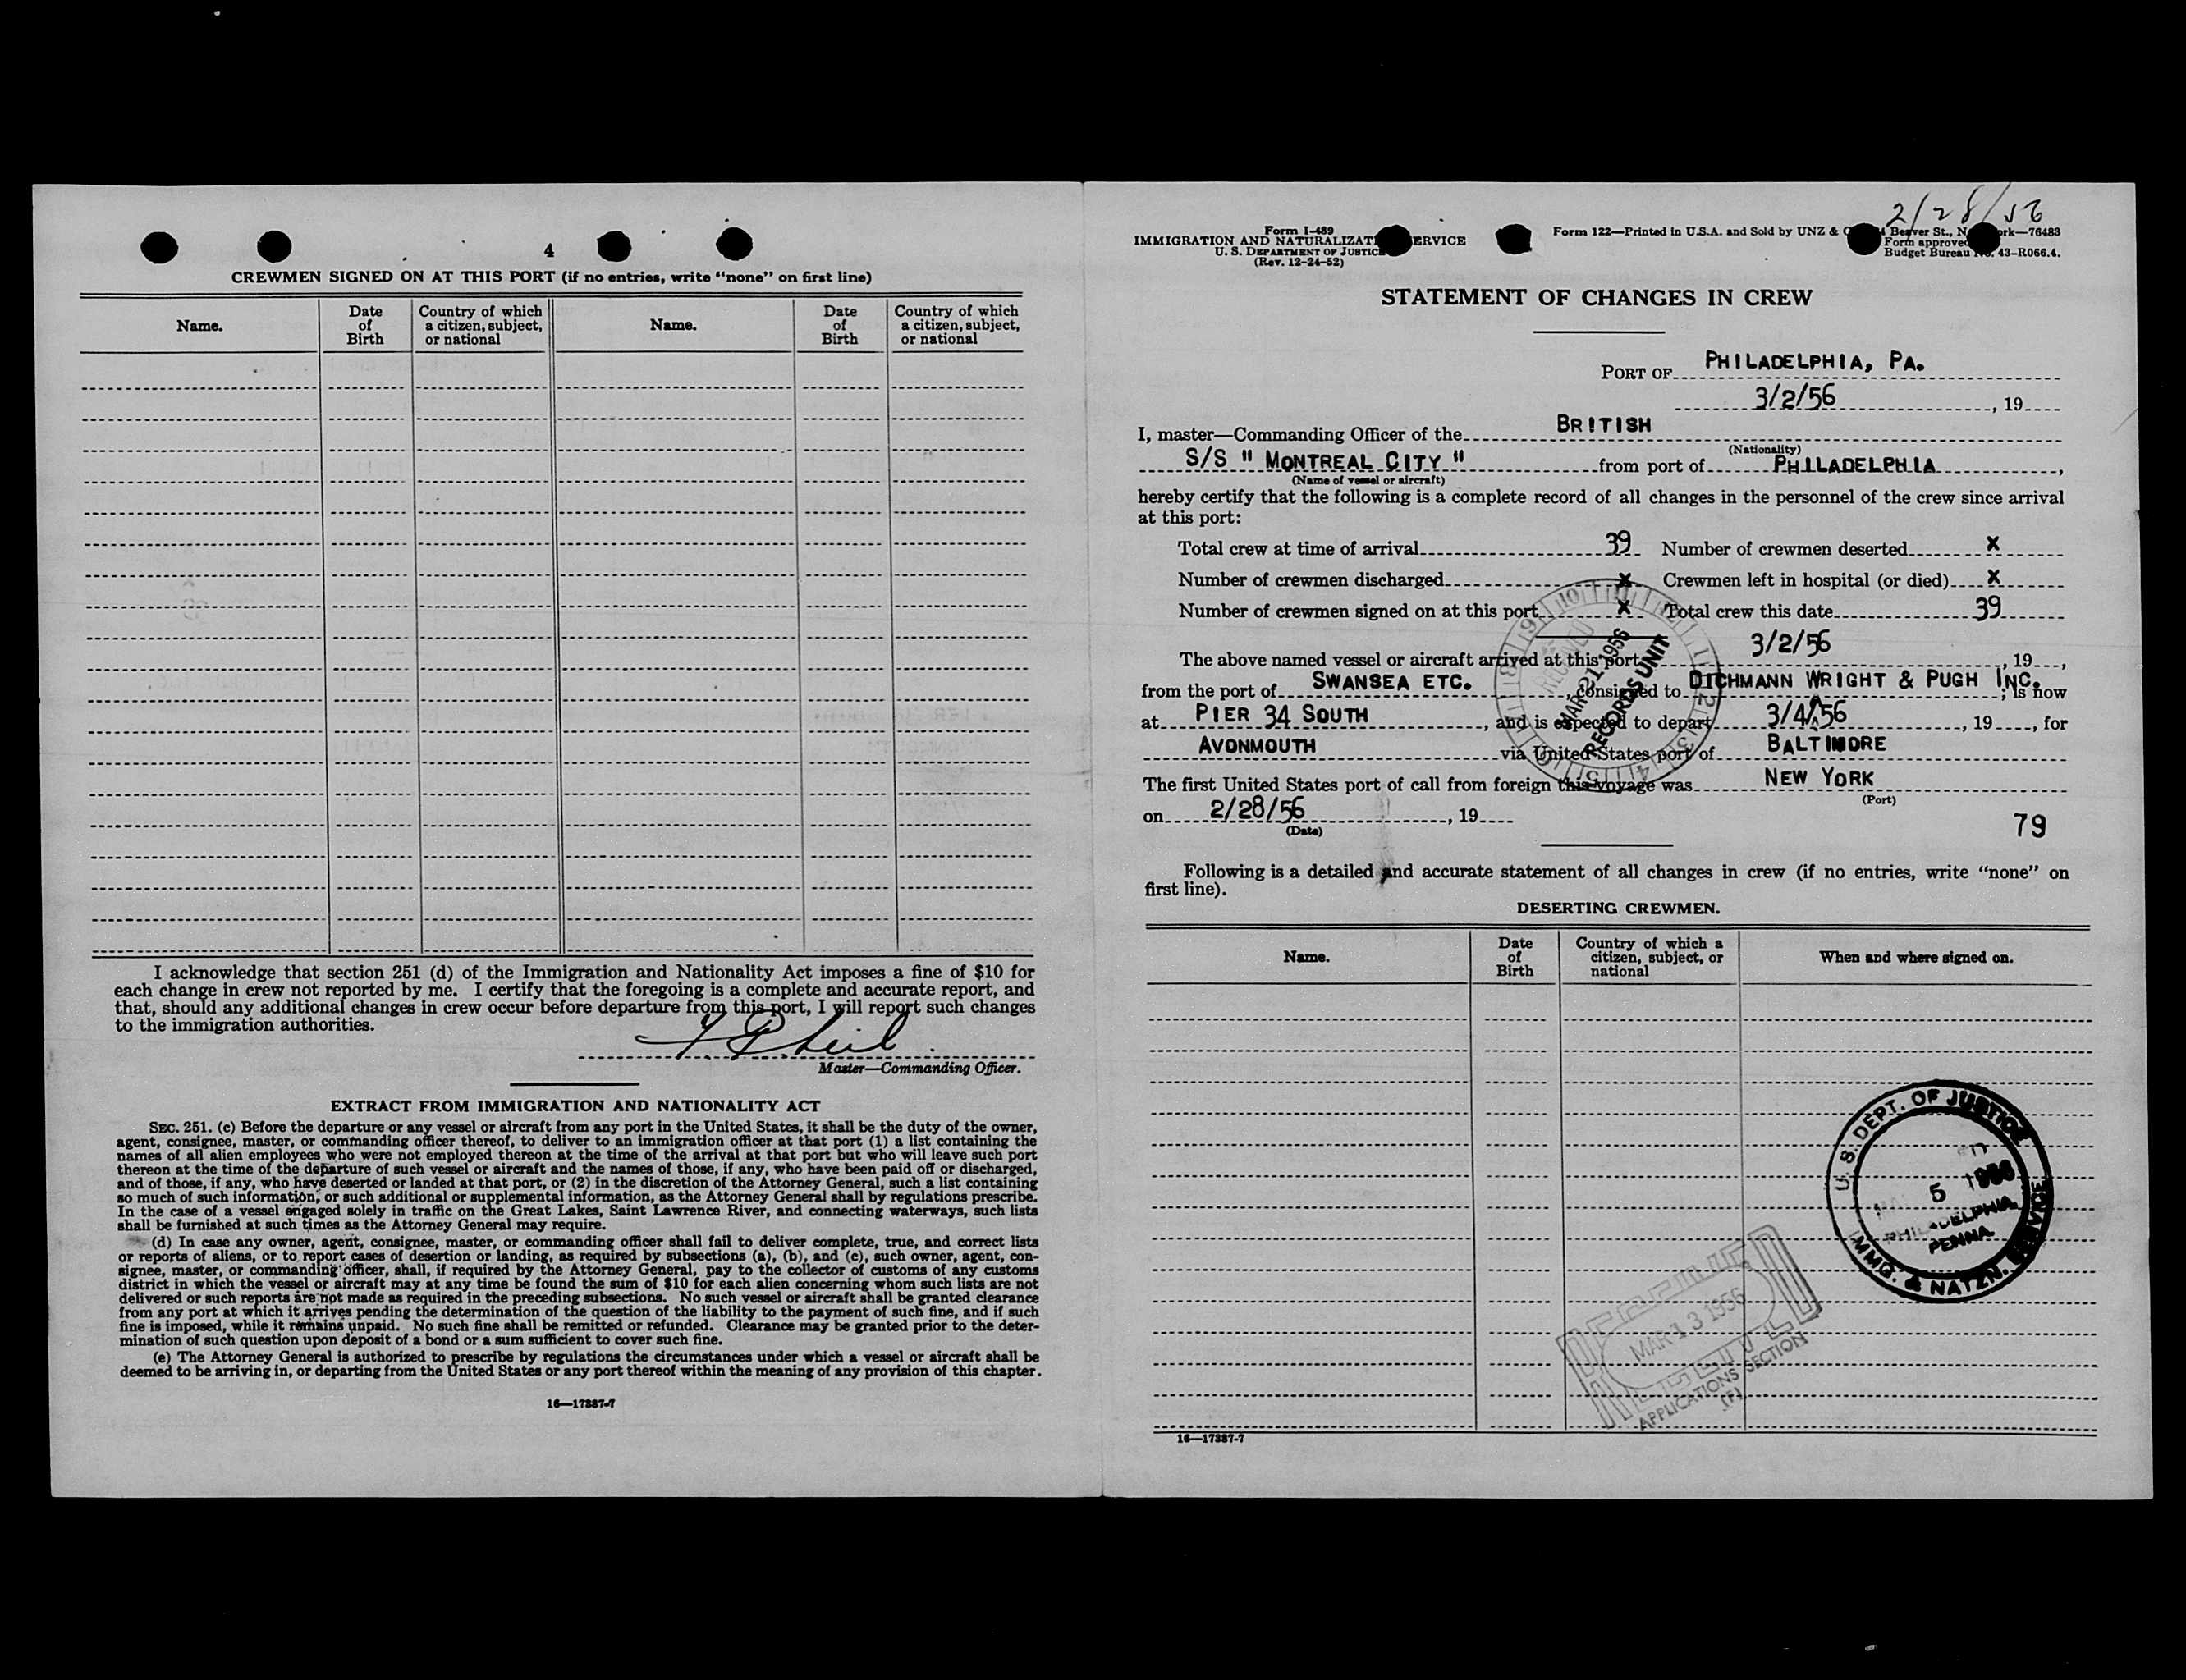 4
CREWMEN SIGNED ON AT THIS PORT (if no entries, write “none” on first line)
Name.
Date
of
Birth
Country of which
a citizen, subject,
or national
Name.
Date
of
Birth
Country of which
a citizen, subject,
or national
I acknowledge that section 251 (d) of the Immigration and Nationality Act imposes a fine of $10 for
each change in crew not reported by me. I certify that the foregoing is a complete and accurate report, and
that, should any additional changes in crew occur before departure from this port, I will report such changes
to the immigration authorities.
Master—Commanding Officer.
EXTRACT FROM IMMIGRATION AND NATIONALITY ACT
SEC. 251. (c) Before the departure or any vessel or aircraft from any port in the United States, it shall be the duty of the owner,
agent, consignee, master, or commanding officer thereof, to deliver to an immigration officer at that port (1) a list containing the
names of all alien employees who were not employed thereon at the time of the arrival at that port but who will leave such port
thereon at the time of the departure of such vessel or aircraft and the names of those, if any, who have been paid off or discharged,
and of those, if any, who have deserted or landed at that port, or (2) in the discretion of the Attorney General, such a list containing
so much of such information, or such additional or supplemental information, as the Attorney General shall by regulations prescribe.
In the case of a vessel engaged solely in traffic on the Great Lakes, Saint Lawrence River, and connecting waterways, such lists
shall be furnished at such times as the Attorney General may require.
(d) In case any owner, agent, consignee, master, or commanding officer shall fail to deliver complete, true, and correct lists
or reports of aliens, or to report cases of desertion or landing, as required by subsections (a), (b), and (c), such owner, agent, con-
signee, master, or commanding officer, shall, if required by the Attorney General, pay to the collector of customs of any customs
district in which the vessel or aircraft may at any time be found the sum of $10 for each alien concerning whom such lists are not
delivered or such reports are not made as required in the preceding subsections. No such vessel or aircraft shall be granted clearance
from any port at which it arrives pending the determination of the question of the liability to the payment of such fine, and if such
fine is imposed, while it remains unpaid. No such fine shall be remitted or refunded. Clearance may be granted prior to the deter-
mination of such question upon deposit of a bond or a sum sufficient to cover such fine.
(e) The Attorney General is authorized to prescribe by regulations the circumstances under which a vessel or aircraft shall be
deemed to be arriving in, or departing from the United States or any port thereof within the meaning of any provision of this chapter.
16—17387-7
2/28/56
Form I-489
IMMIGRATION AND NATURALIZAT ERVICE
U. S. DEPARTMENT OF JUSTIC
(Rev. 12-24-52)
Form 122—Printed in U.S.A. and Sold by UNZ & Beaver St., N ork—76483
Form approved
Budget Bureau No. 43-R066.4.
STATEMENT OF CHANGES IN CREW
PORT OF PHILADELPHIA, PA.
3/2/56, 19
I, master—Commanding Officer of the BRITISH
(Nationality)
S/S " MONTREAL CITY " from port of PHILADELPHIA,
(Name of vessel or aircraft)
hereby certify that the following is a complete record of all changes in the personnel of the crew since arrival
at this port:
Total crew at time of arrival 39 Number of crewmen deserted X
Number of crewmen discharged X Crewmen left in hospital (or died) X
Number of crewmen signed on at this port X Total crew this date 39
The above named vessel or aircraft arrived at this port 3/2/56, 19,
from the port of SWANSEA ETC., consigned to DICHMANN WRIGHT & PUGH INC.; is now
at PIER 34 SOUTH, and is expected to depart 3/4/56, 19, for
AVONMOUTH via United States port of BALTIMORE
The first United States port of call from foreign this voyage was NEW YORK
(Port)
on 2/28/56, 19
(Date)
79
MAR 21 1956
RECORDS UNIT
Following is a detailed and accurate statement of all changes in crew (if no entries, write “none” on
first line).
DESERTING CREWMEN.
Name.
Date
of
Birth
Country of which a
citizen, subject, or
national
When and where signed on.
U. S. DEPT. OF JUSTICE
5 1956
PHILADELPHIA
PENNA.
IMMG. & NATZN. SERVICE
RECEIVED
MAR 13 1956
APPLICATIONS SECTION
(F)
16—17387-7